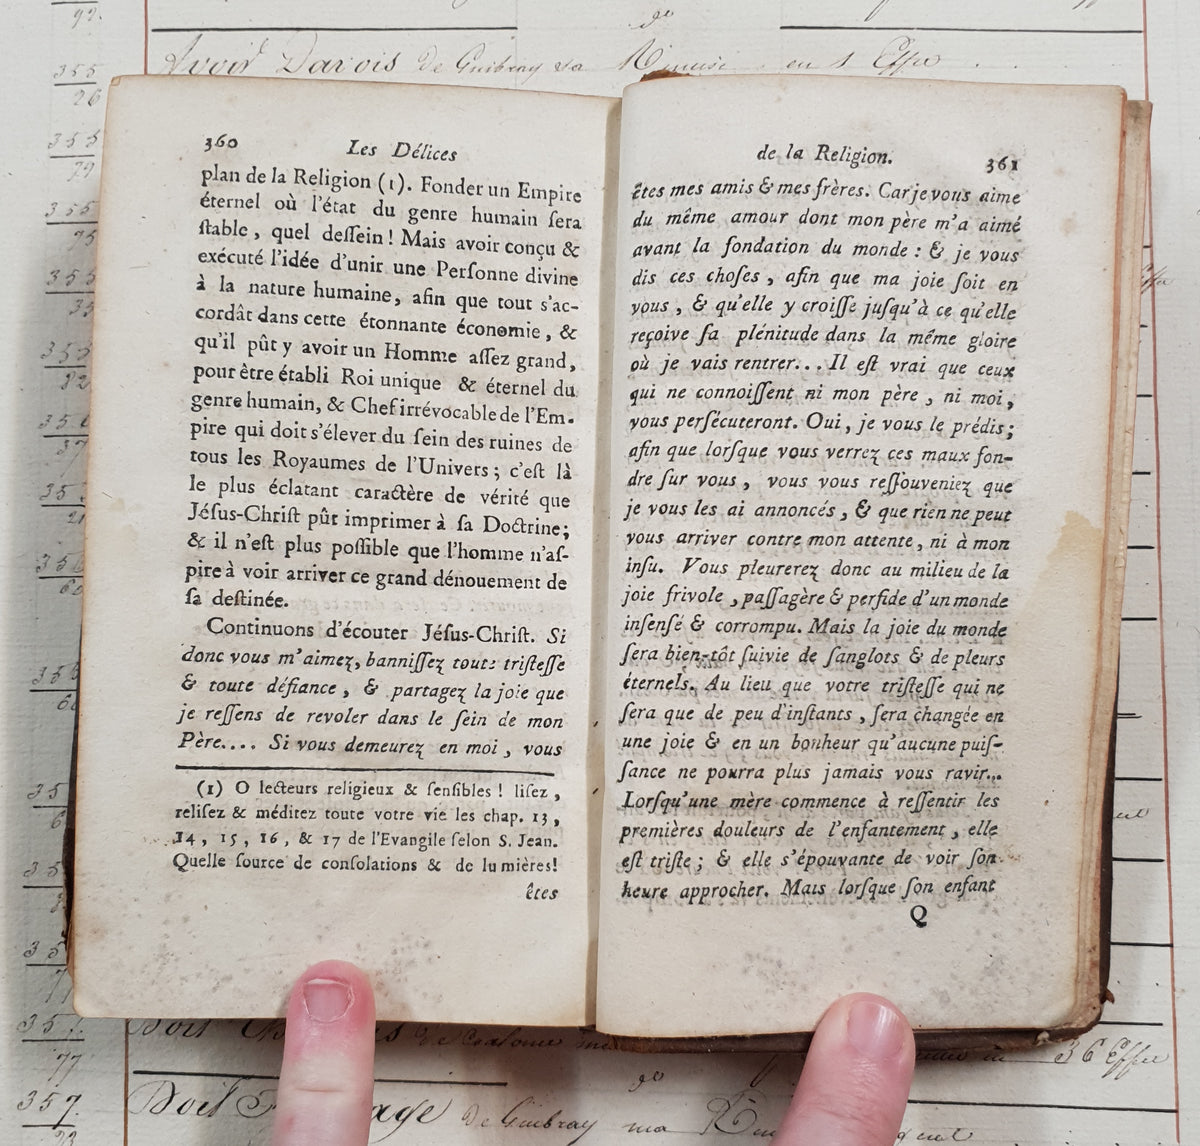 360 Les Délices
plan de la Religion (1). Fonder un Empire
éternel où l'état du genre humain ſera
ſtable, quel deſſein! Mais avoir conçu &
exécuté l'idée d'unir une Perſonne divine
à la nature humaine, afin que tout s'ac-
cordât dans cette étonnante économie, &
qu'il pût y avoir un Homme aſſez grand,
pour être établi Roi unique & éternel du
genre humain, & Chef irrévocable de l'Em-
pire qui doit s'élever du ſein des ruines de
tous les Royaumes de l'Univers; c'eſt là
le plus éclatant caractère de vérité que
Jéſus-Chriſt pût imprimer à ſa Doctrine;
& il n'eſt plus poſſible que l'homme n'aſ-
pire à voir arriver ce grand dénouement de
ſa deſtinée.
Continuons d'écouter Jéſus-Chriſt. Si
donc vous m'aimez, banniſſez toute triſteſſe
& toute défiance, & partagez la joie que
je reſſens de revoler dans le ſein de mon
Père.... Si vous demeurez en moi, vous
(1) O lecteurs religieux & ſenſibles! liſez,
reliſez & méditez toute votre vie les chap. 13,
14, 15, 16, & 17 de l'Evangile ſelon S. Jean.
Quelle ſource de conſolations & de lumières!
êtes
de la Religion. 361
êtes mes amis & mes frères. Car je vous aime
du même amour dont mon père m'a aimé
avant la fondation du monde: & je vous
dis ces choſes, afin que ma joie ſoit en
vous, & qu'elle y croiſſe juſqu'à ce qu'elle
reçoive ſa plénitude dans la même gloire
où je vais rentrer... Il eſt vrai que ceux
qui ne connoiſſent ni mon père, ni moi,
vous perſécuteront. Oui, je vous le prédis;
afin que lorſque vous verrez ces maux fon-
dre ſur vous, vous vous reſſouveniez que
je vous les ai annoncés, & que rien ne peut
vous arriver contre mon attente, ni à mon
inſu. Vous pleurerez donc au milieu de la
joie frivole, paſſagère & perfide d'un monde
inſenſé & corrompu. Mais la joie du monde
ſera bien-tôt ſuivie de ſanglots & de pleurs
éternels. Au lieu que votre triſteſſe qui ne
ſera que de peu d'inſtants, ſera changée en
une joie & en un bonheur qu'aucune puiſ-
ſance ne pourra plus jamais vous ravir...
Lorſqu'une mère commence à reſſentir les
premières douleurs de l'enfantement, elle
eſt triſte; & elle s'épouvante de voir ſon
heure approcher. Mais lorſque ſon enfant
Q